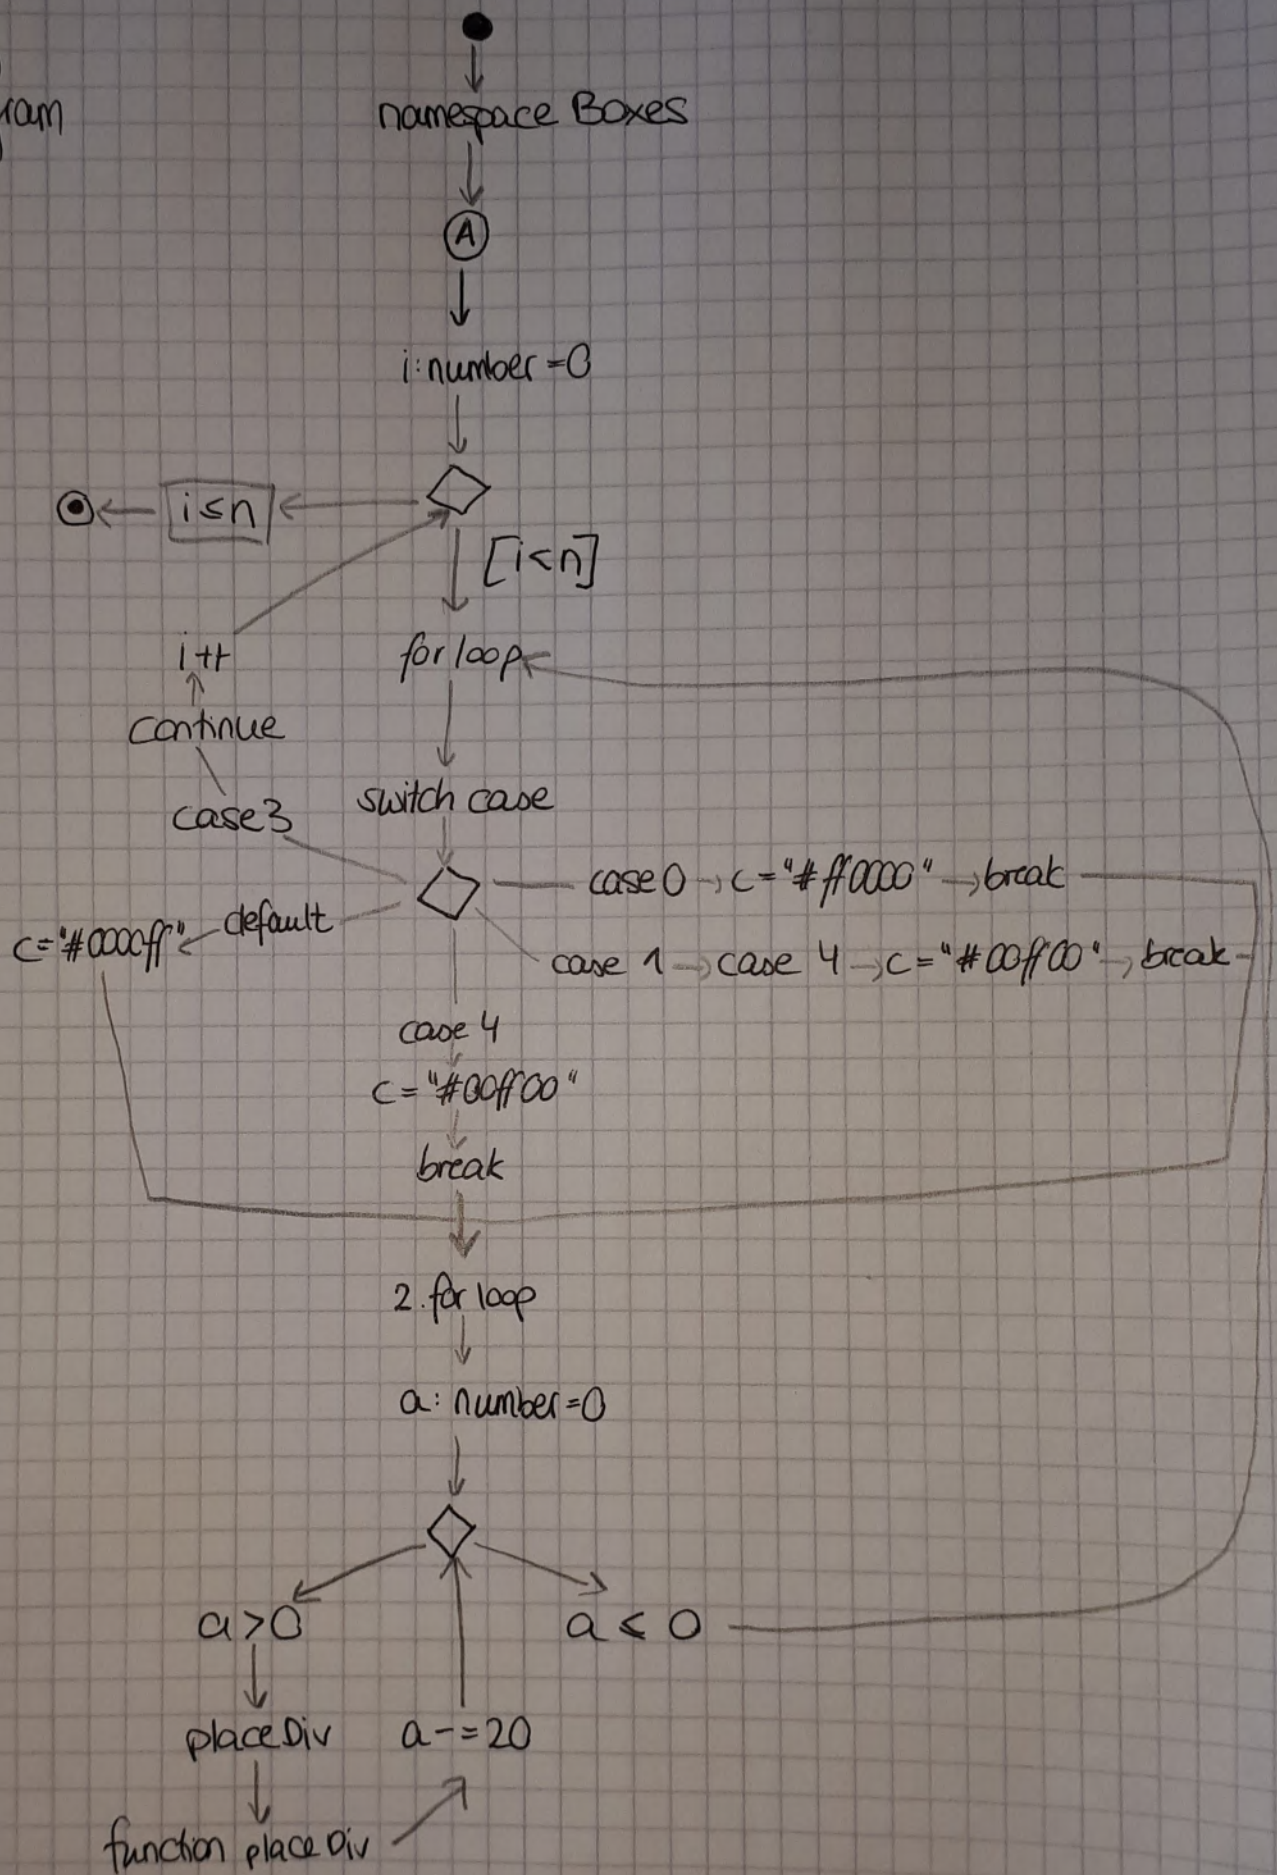 namespace Boxes
A
i:number=0
i≤n
[i<n]
i++
for loop
continue
case3
switch case
case 0 c="#ff0000" break
default
c="#0000ff"
case 1 case 4 c="#00ff00" break
case 4
c="#00ff00"
break
2. for loop
a: number=0
a>0
a ≤ 0
placeDiv
a-=20
function placeDiv